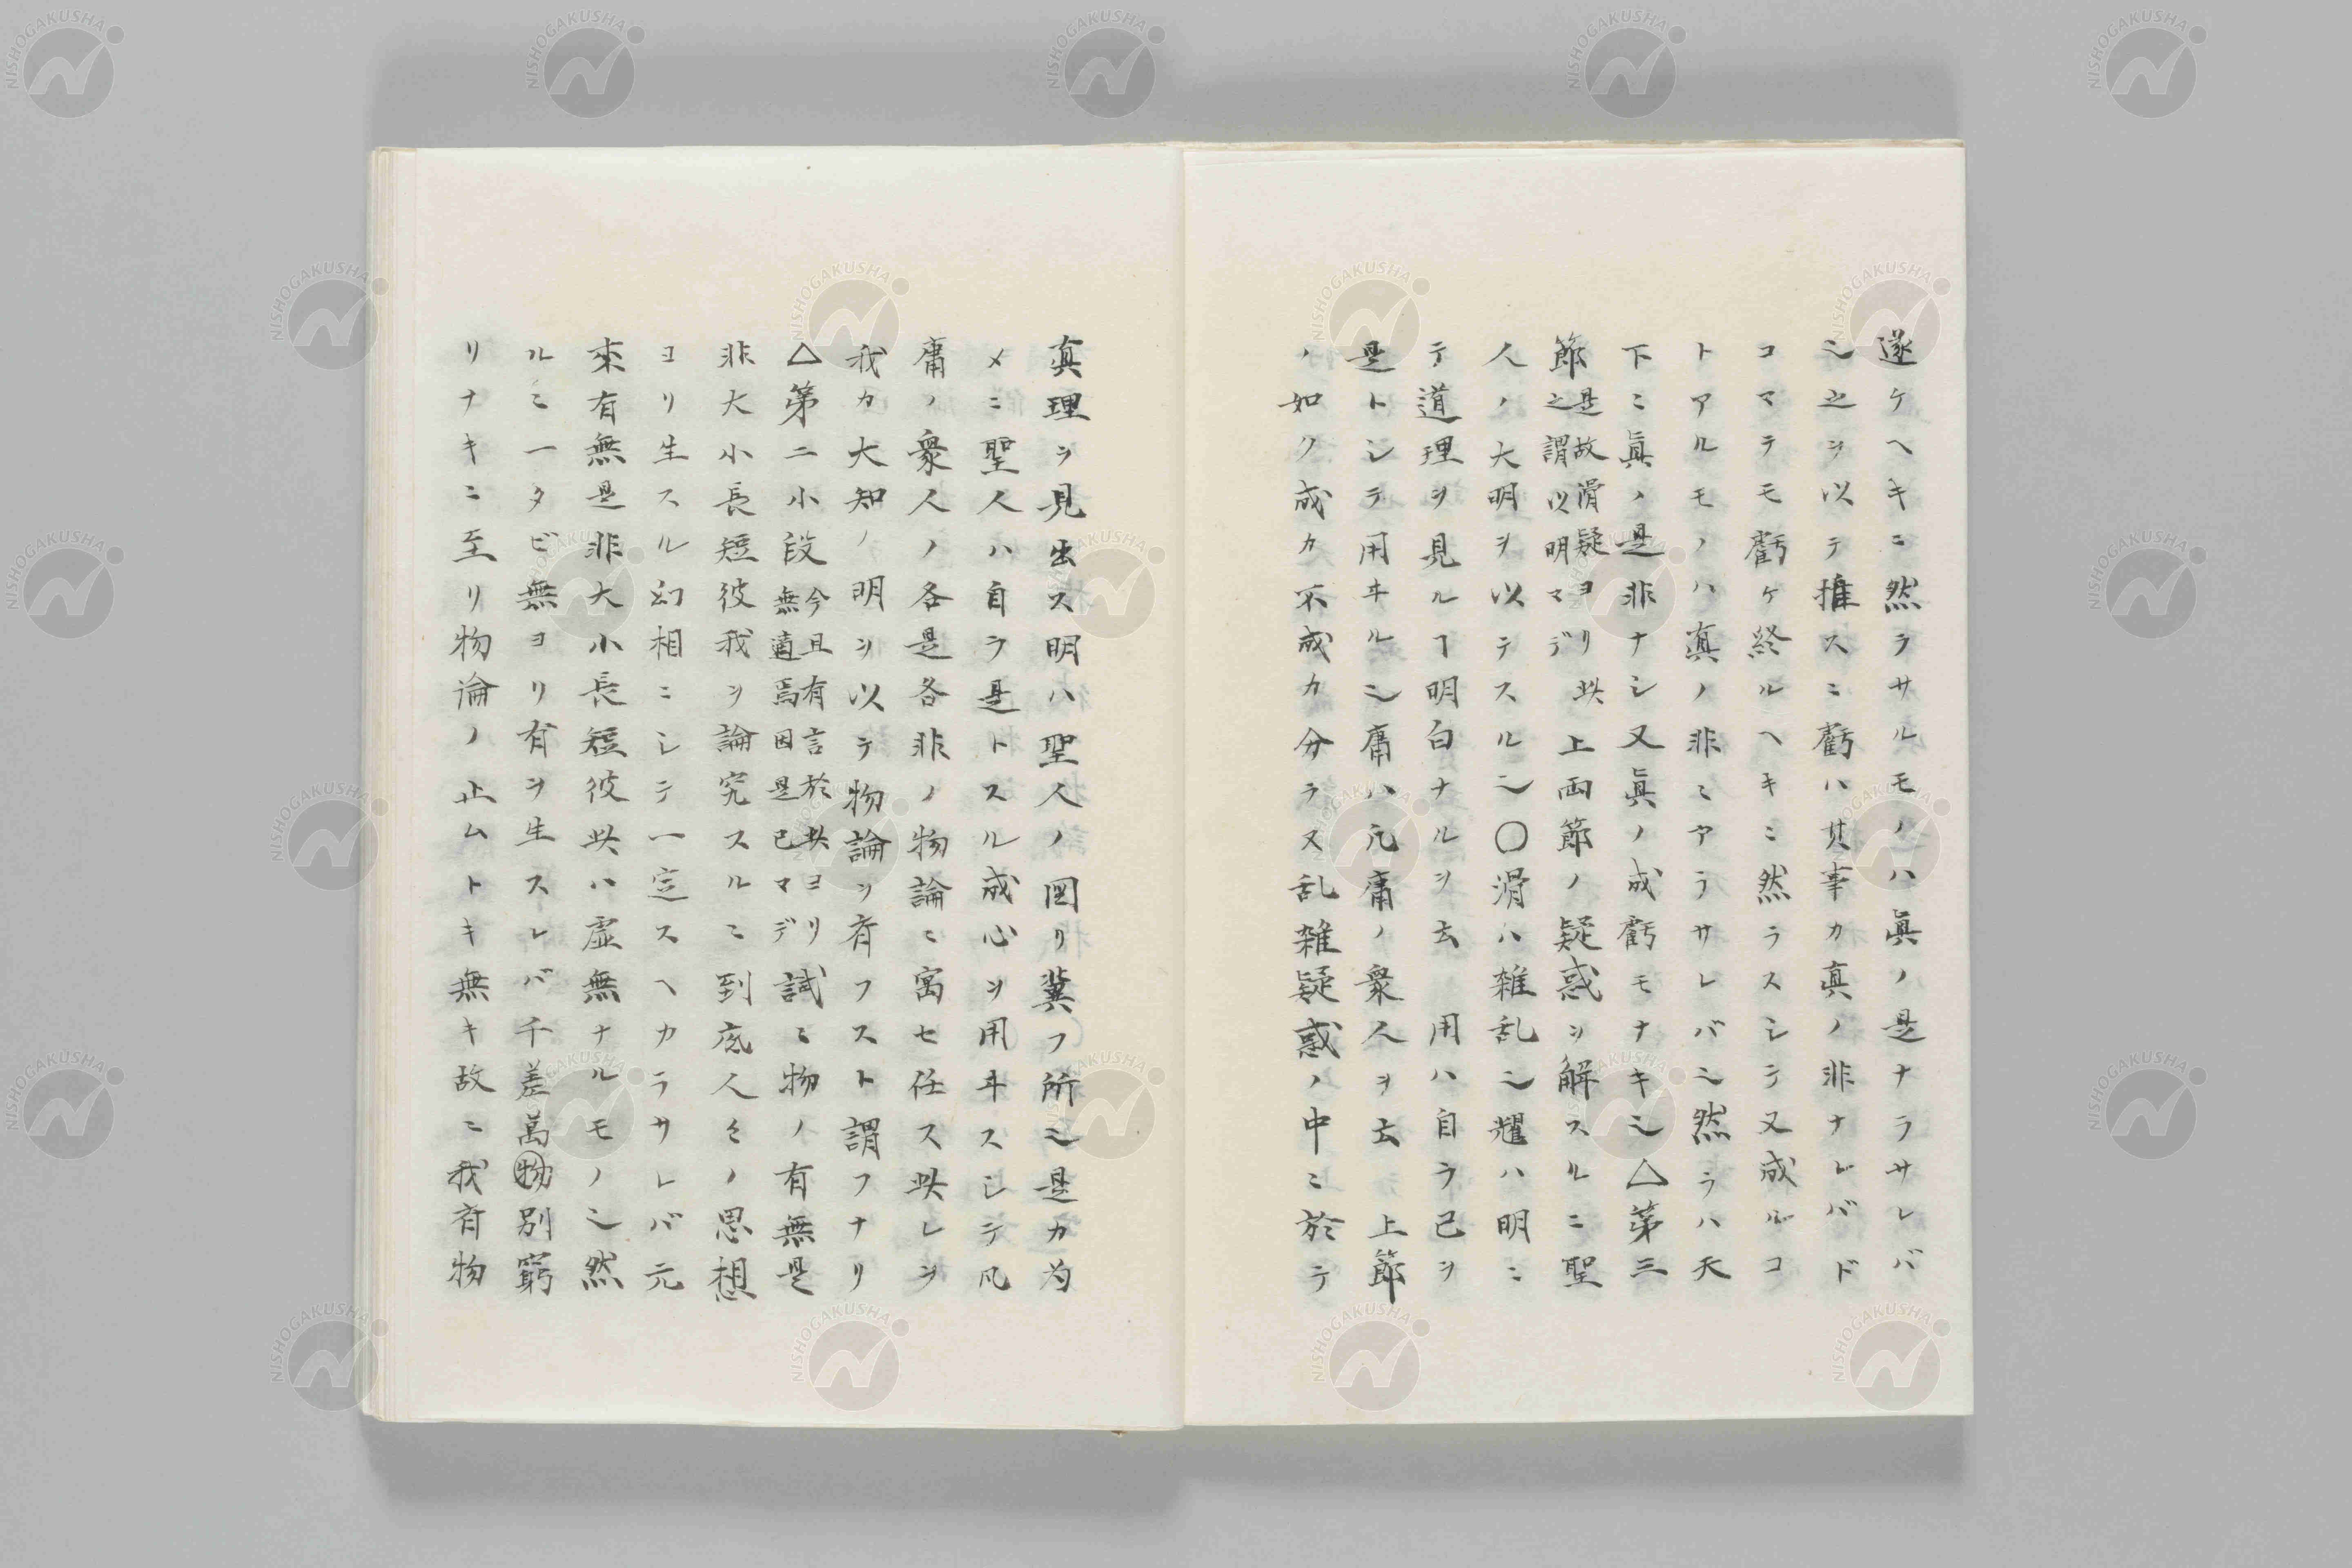 遂ケヘキニ然ラサルモノハ眞ノ是ナラサレバ
也之ヲ以テ推スニ虧ハ其事カ真ノ非ナレバド
コマテモ虧ケ終ルヘキニ然ラスシテ又成ルコ
トアルモノハ真ノ非ミアラサレバ也然ラハ天
下ニ眞ノ是非ナシ又眞ノ成虧モナキ也△第三
節是故滑疑ヨリ此之謂以明マデ上両節ノ疑惑ヲ解スルニ聖
人ノ大明ヲ以テスル也〇滑ハ雑乱也耀ハ明ニ
テ道理ヲ見ルヿ明白ナルヲ云 用ハ自ラ己ヲ
是トシテ用ヰル也庸ハ凡庸ノ衆人ヲ云 上節
ノ如ク成カ不成カ分ラヌ乱雑疑惑ノ中ニ於テ
真理ヲ見出ス明ハ聖人ノ図リ冀フ所也是カ为
メニ聖人ハ自ラ是トスル成心ヲ用ヰスシテ凡
庸ノ衆人ノ各是各非ノ物論ニ寓セ任ス此レヲ
我カ大知ノ明ヲ以テ物論ヲ斉フスト謂フナリ
△第二小段今且有言於此ヨリ無適焉因是已マデ試ミ物ノ有無是
非大小長短彼我ヲ論究スルニ到底人々ノ思想
ヨリ生スル幻相ニシテ一定スヘカラサレバ元
來有無是非大小長短彼此ハ虚無ナルモノ也然
ルミ一タビ無ヨリ有ヲ生スレバ千差萬物別窮
リナキニ至リ物論ノ止ムトキ無キ故ニ我斉物
NISHOGAKUSHA